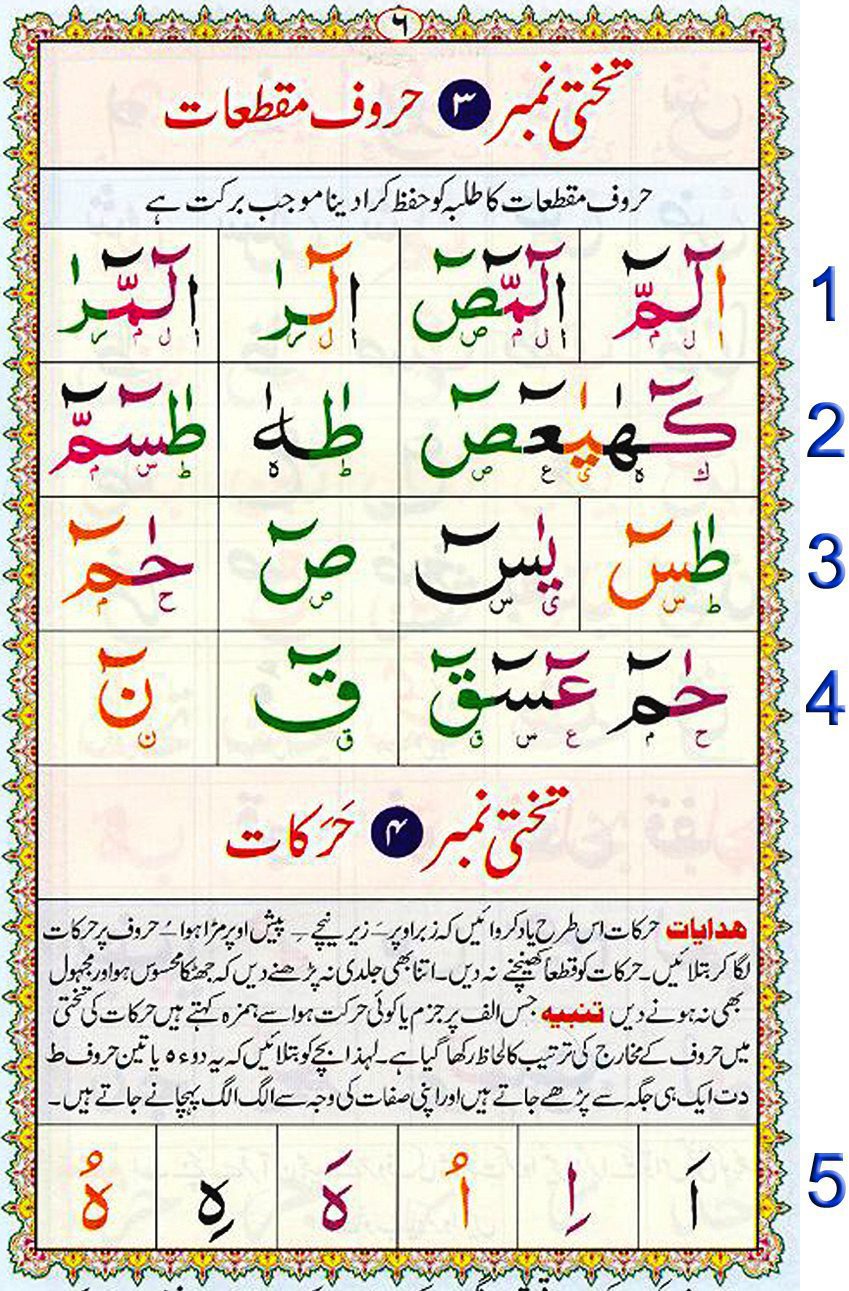 ٦
تختی نمبر ٣ حروف مقطعات
حروف مقطعات کا طلبہ کو حفظ کرا دینا موجب برکت ہے
الٓمّٓ الٓمّٓصٓ الٓرٰ الٓمّٓرٰ 1
ا ل م ا ل م ص ا ل ر ا ل م ر
کٓھٰیٰعٓصٓ طٰہٰ طٰسٓمّٓ 2
ك ہ ی ع ص ط ہ ط س م
طٰسٓ یٰسٓ صٓ حٰمٓ 3
ط س ی س ص ح م
حٰمٓ عٓسٓقٓ قٓ نٓ 4
ح م ع س ق ق ن
تختی نمبر ۴ حَرَکات
ھدایات حرکات اس طرح یاد کروائیں کہ زبر اوپر ـَـ زیر نیچے ـِـ پیش اوپر مڑا ہوا ـُـ حروف پر حرکات
لگا کر بتلائیں۔ حرکات کو قطعاً کھینچنے نہ دیں۔ اتنا بھی جلدی نہ پڑھنے دیں کہ جھٹکا محسوس ہو اور مجہول
بھی نہ ہونے دیں تنبیہ جس الف پر جزم یا کوئی حرکت ہو اسے ہمزہ کہتے ہیں حرکات کی تختی
میں حروف کے مخارج کی ترتیب کا لحاظ رکھا گیا ہے۔ لہذا بچے کو بتلائیں کہ یہ دو ء ہ یا تین حروف ط
د ت ایک ہی جگہ سے پڑھے جاتے ہیں اور اپنی صفات کی وجہ سے الگ الگ پہچانے جاتے ہیں۔
اَ اِ اُ ہَ ہِ ہُ 5